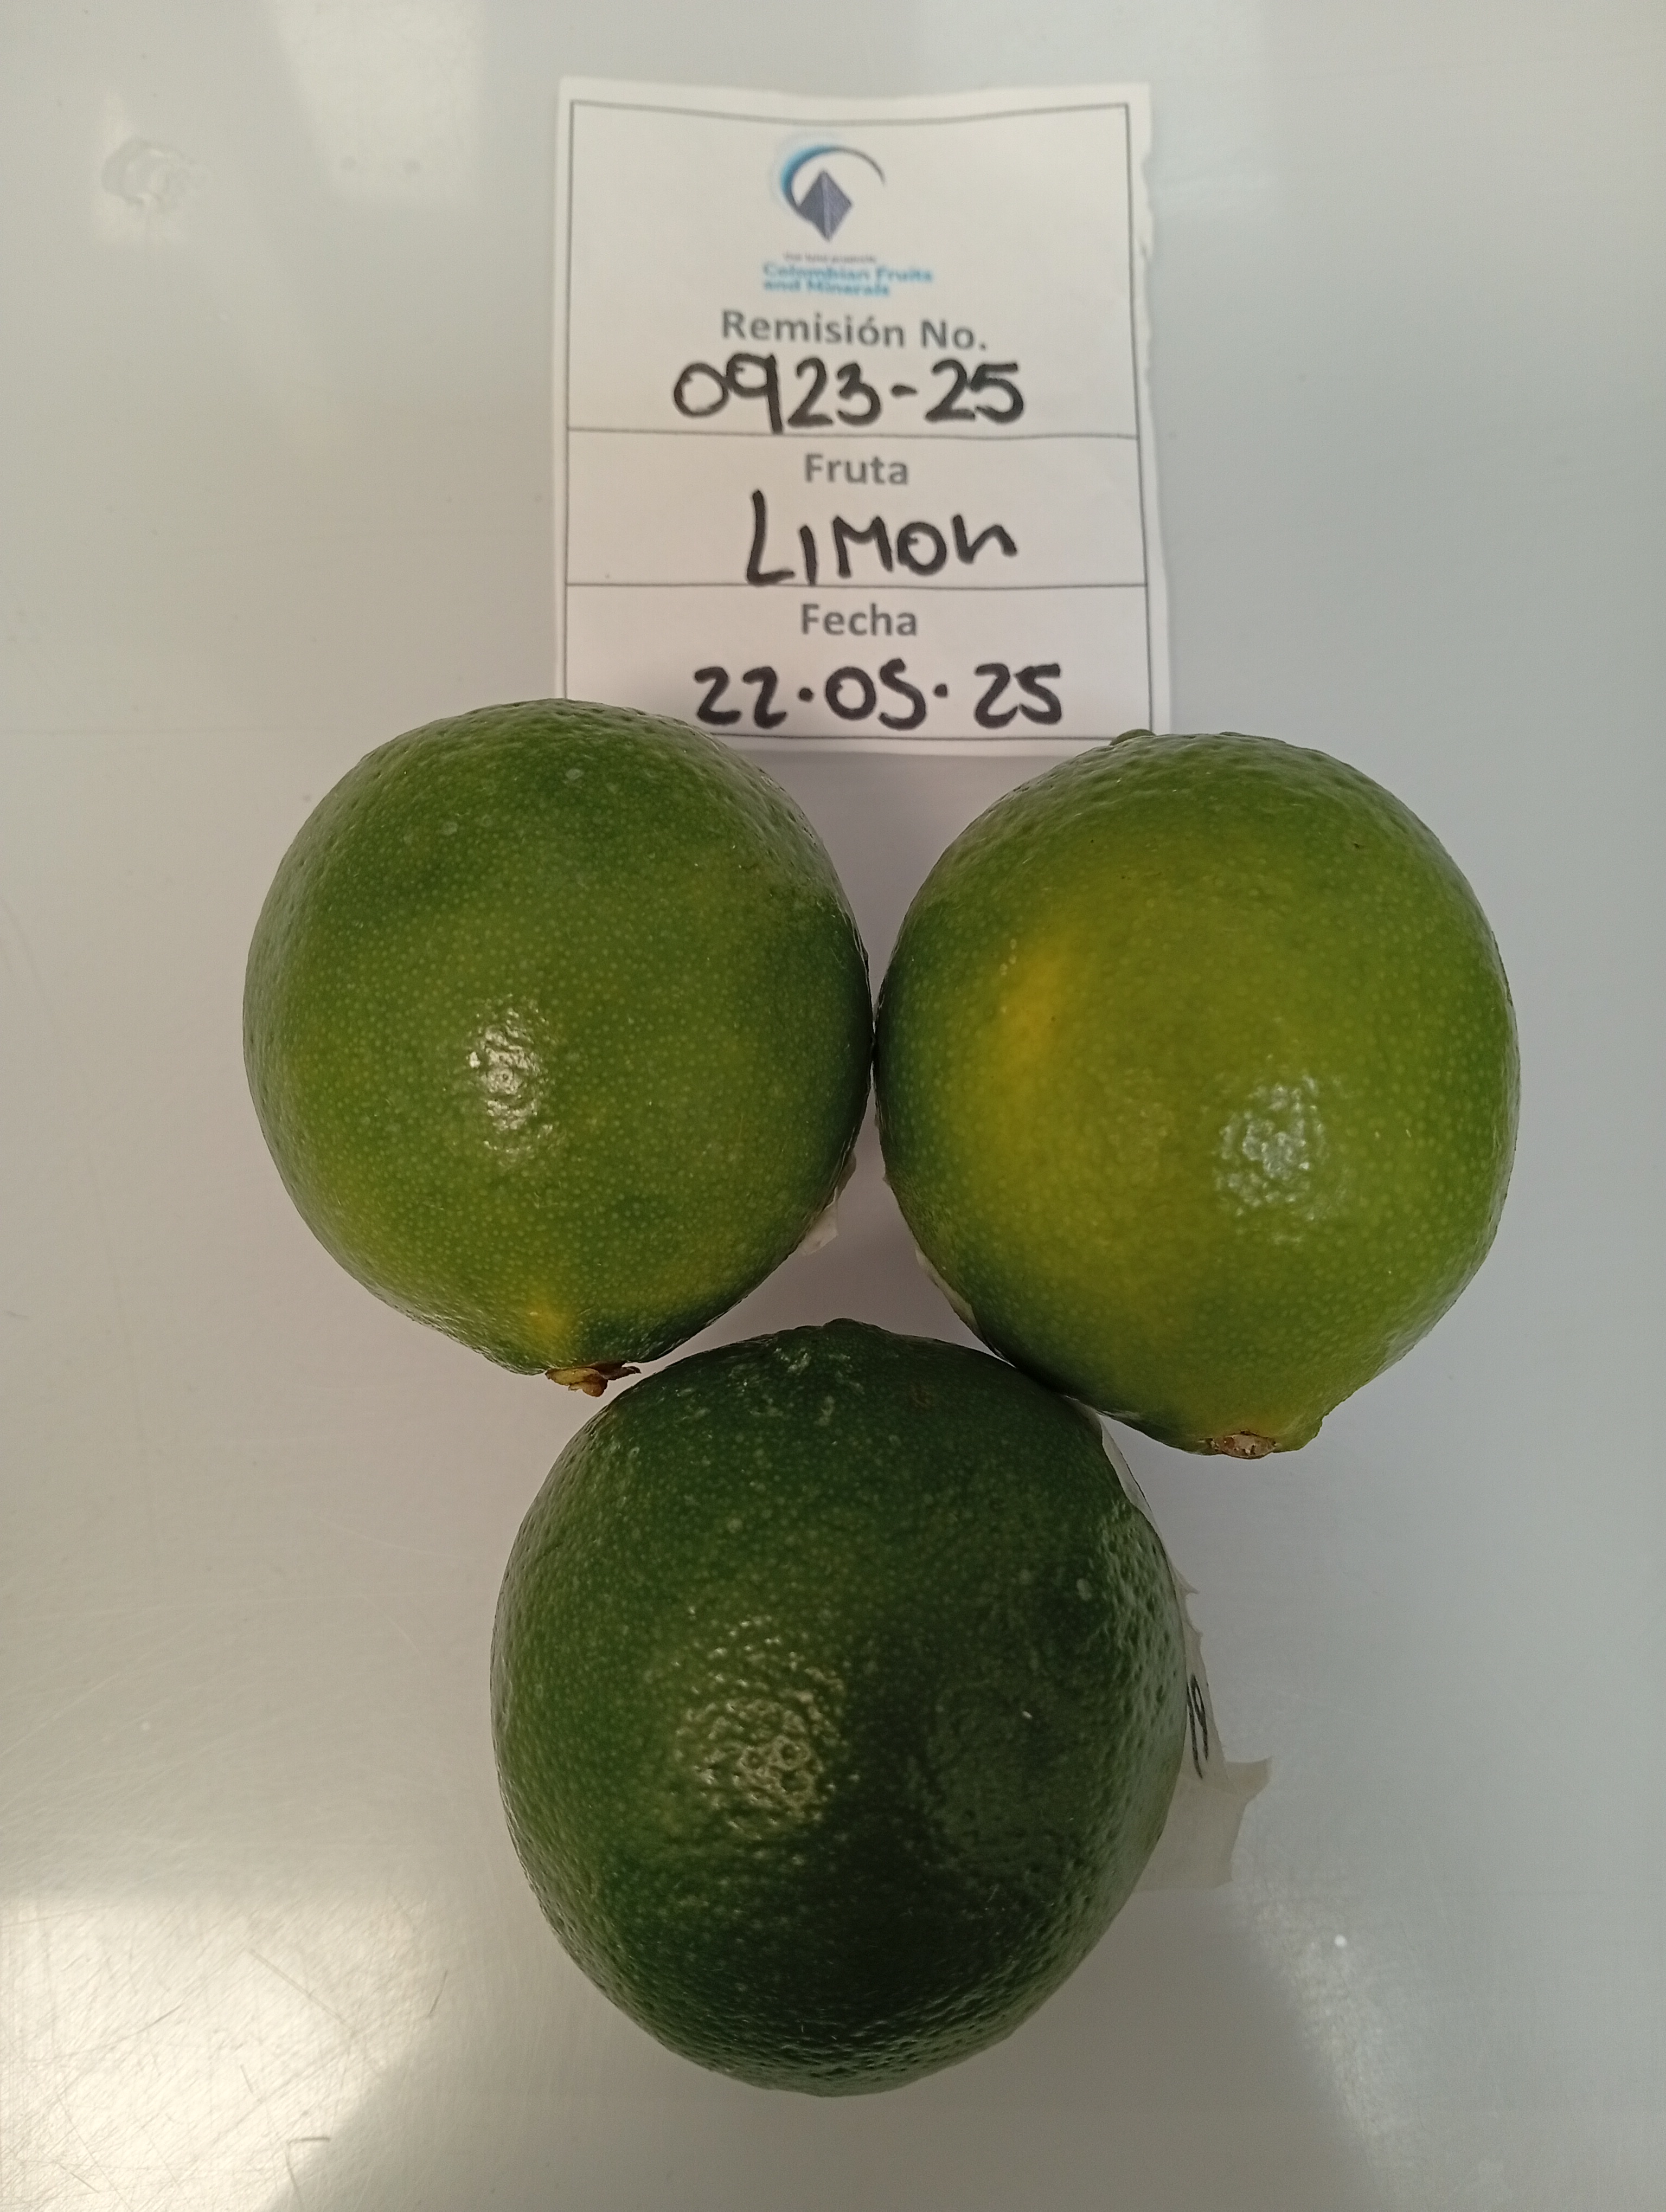 Colombian Fruits
and Minerals
Remisión No.
0923-25
Fruta
LIMON
Fecha
22·05·25